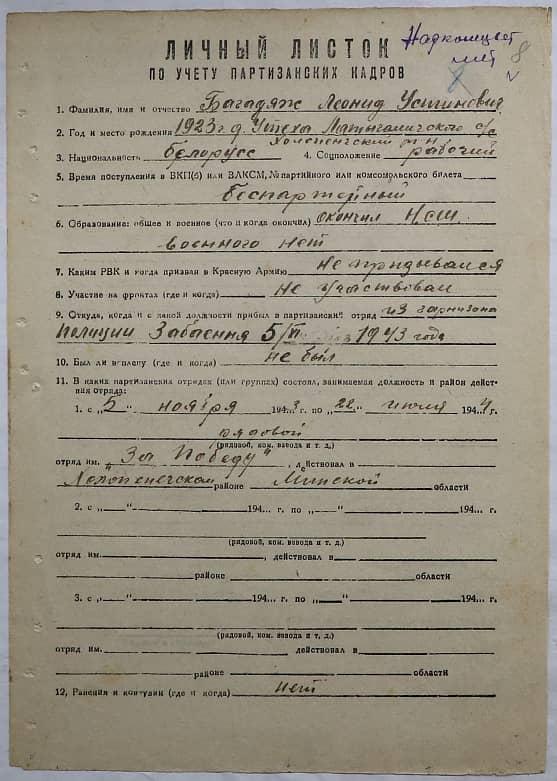 ЛИЧНЫЙ ЛИСТОК
ПО УЧЕТУ ПАРТИЗАНСКИХ КАДРОВ
8
8
1. Фамилия, имя и отчество Багадяж Леонид Устинович
2. Год и место рождения 1923 г. д. Утеха с/с
Холопеничский р-н
3. Национальность белорусс 4. Соцположение рабочий
5. Время поступления в ВКП(б) или ВЛКСМ, № партийного или комсомольского билета
беспартейный
6. Образование: общее и военное (что и когда окончил) окончил НСШ
военного нет
7. Каким РВК и когда призван в Красную Армию не придывался
8. Участие на фронтах (где и когда) не участвовал
9. Откуда, когда и с какой должности прибыл в партизанский отряд из гарнизона
полиции 5/ 1943 года
10. Был ли в плену (где и когда) не был
11. В каких партизанских отрядах (или группах) состоял, занимаемая должность и район дейст-
вия отряда:
1. с „5“ ноября 1943 г. по „22“ июля 1944 г.
рядовой
(рядовой, ком. взвода и т. д.)
отряд им. „За Победу“, действовал в
Холопенечском районе Минской области
2. с „ “ 194... г. по „ “ 194... г.
(рядовой, ком. взвода и т. д.)
отряд им. , действовал в
районе области
3. с „ “ 194... г. по „ “ 194... г.
(рядовой, ком. взвода и т. д.)
отряд им. действовал в
районе области
12. Ранения и контузии (где и когда) нет